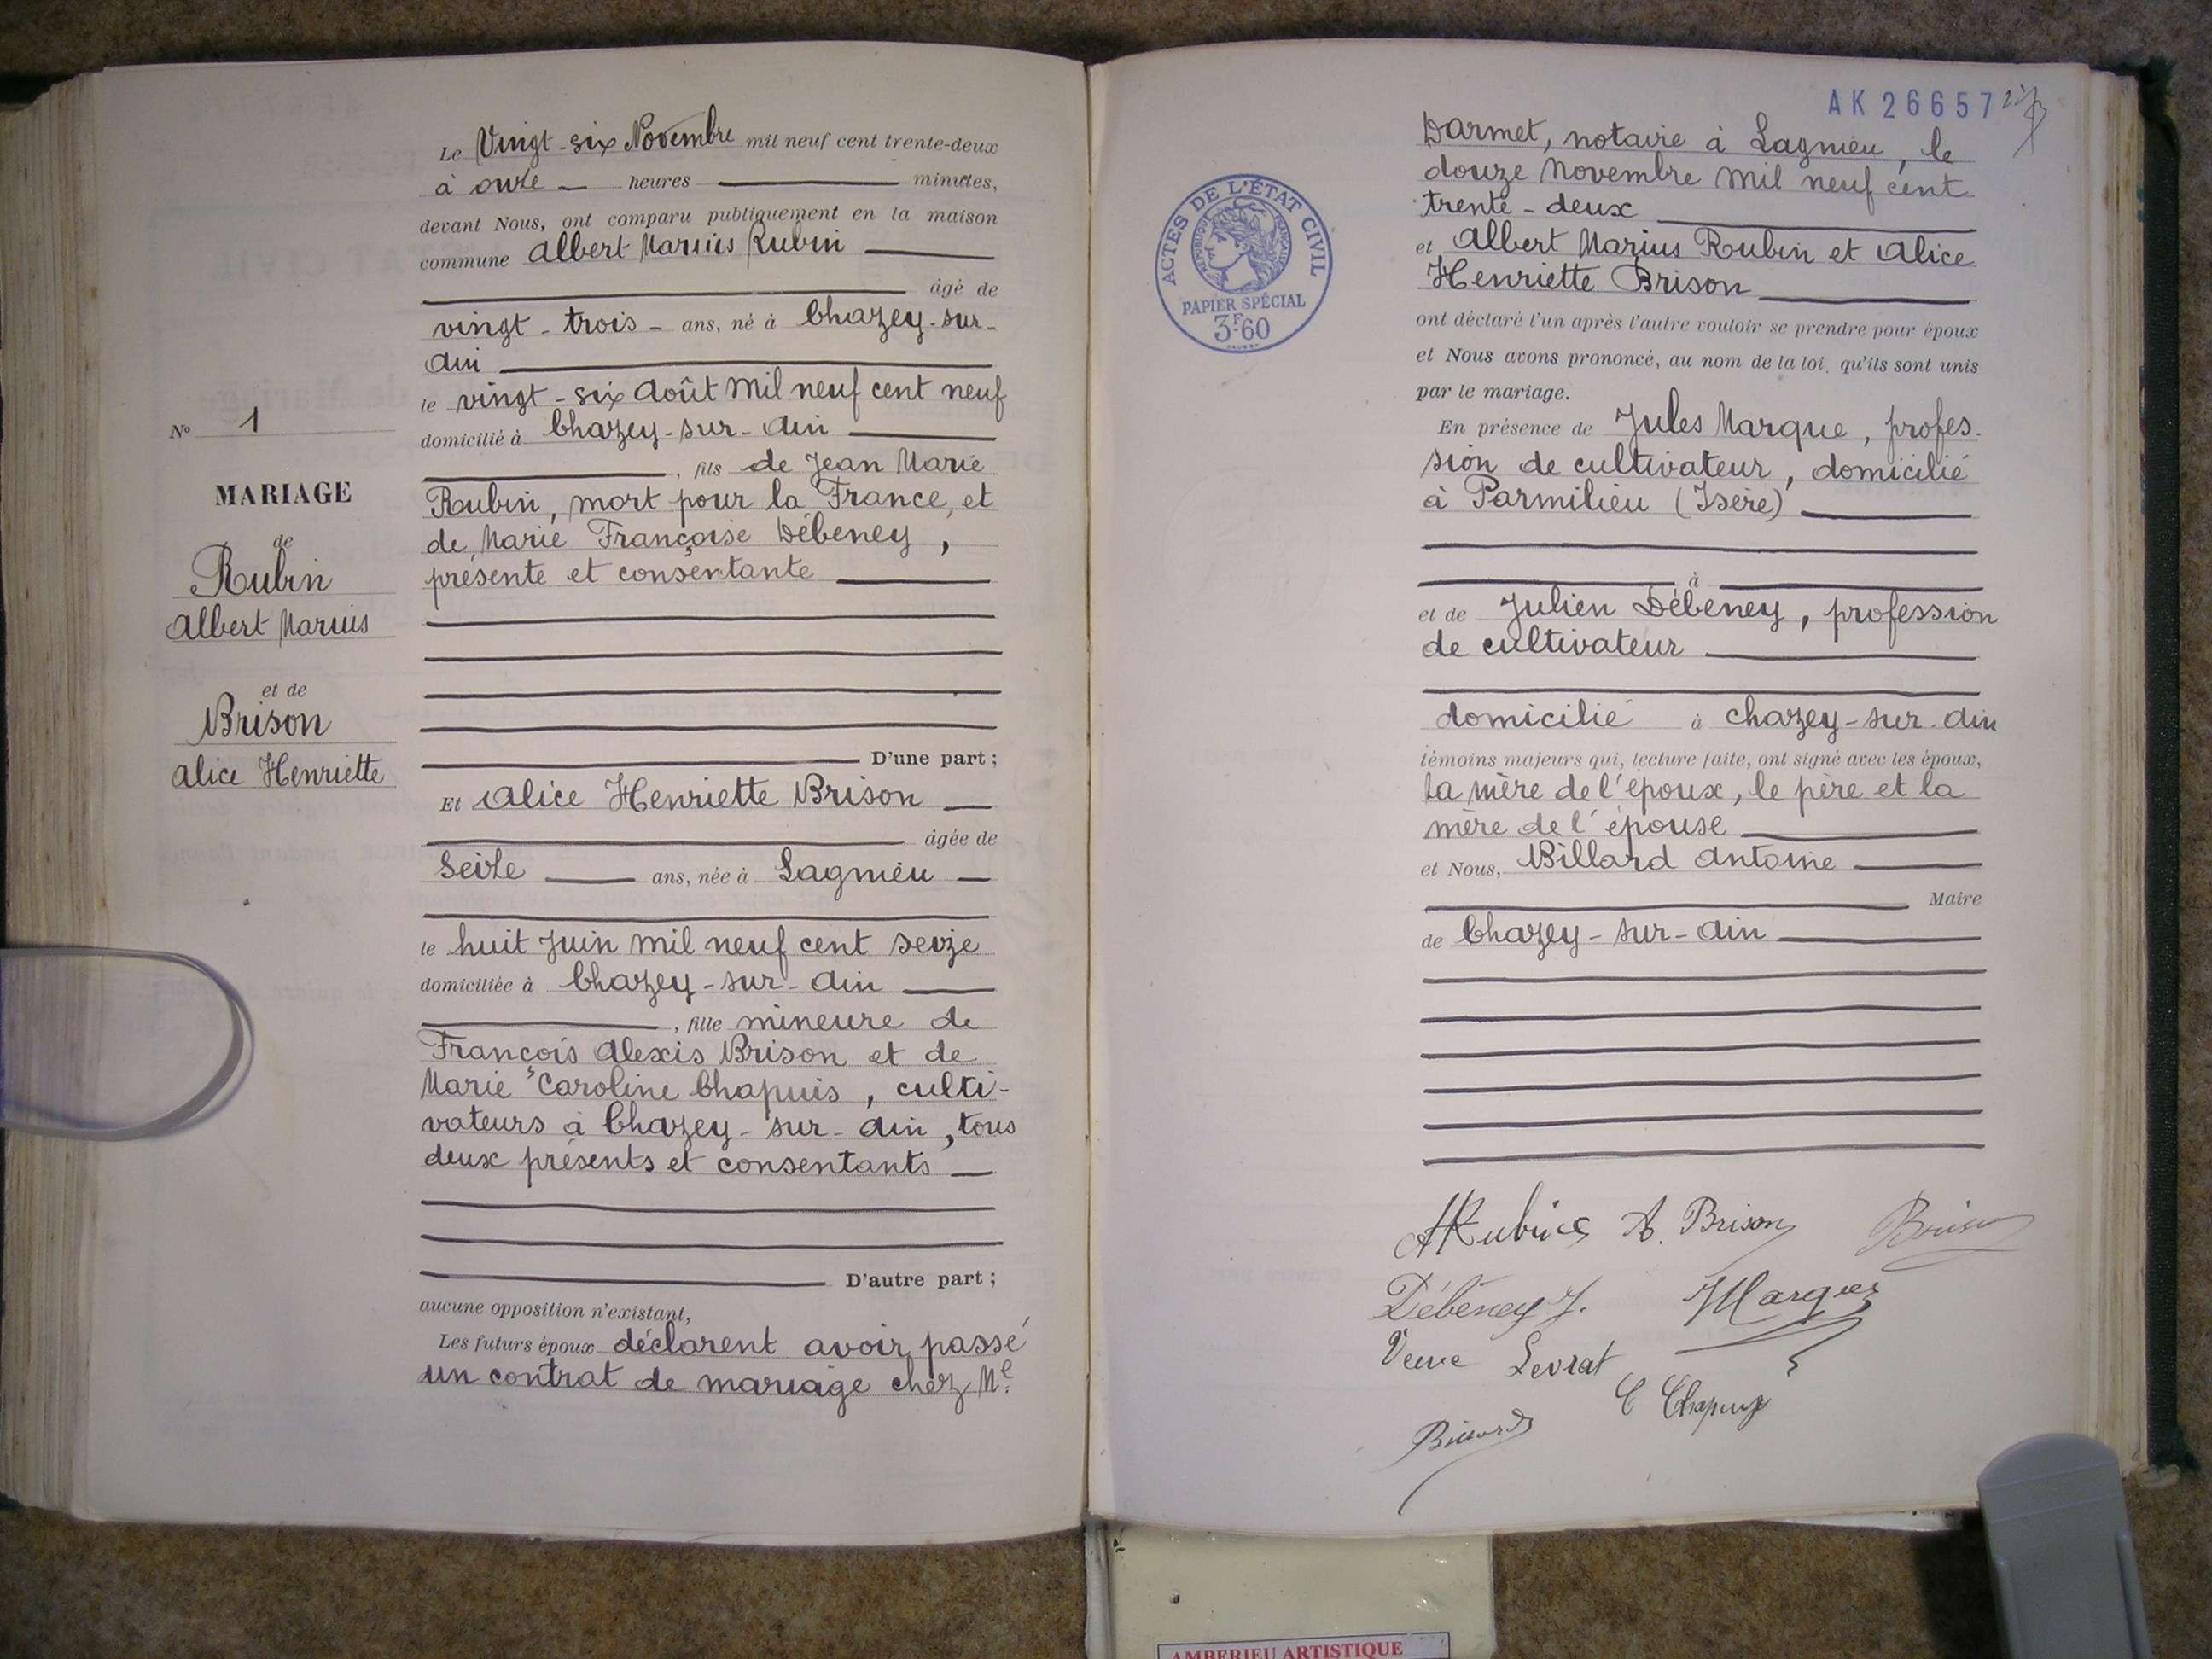 Le Vingt-six Novembre mil neuf cent trente-deux
à onze heures minutes,
devant Nous, ont comparu publiquement en la maison
commune Albert Marius Rubin
âgé de
vingt-trois- ans, né à Chazey-sur-
Ain
le vingt-six Août mil neuf cent neuf
domicilié à Chazey-sur-Ain
, fils de Jean Marie
Rubin, mort pour la France, et
de Marie Françoise Débeney,
présente et consentante
D'une part;
N° 1
MARIAGE
de
Rubin
Albert Marius
et de
Brison
Alice Henriette
Et Alice Henriette Brison
âgée de
Seize ans, née à Lagnieu
le huit Juin mil neuf cent seize
domiciliée à Chazey-sur-Ain
, fille mineure de
François Alexis Brison et de
Marie Caroline Chapuis, culti-
vateurs à Chazey-sur-Ain, tous
deux présents et consentants
D'autre part;
aucune opposition n'existant,
Les futurs époux déclarent avoir passé
un contrat de mariage chez Me
AK 26657
Darmet, notaire à Lagnieu, le
douze Novembre mil neuf cent
trente-deux
et Albert Marius Rubin et Alice
Henriette Brison
ont déclaré l'un après l'autre vouloir se prendre pour époux
et Nous avons prononcé, au nom de la loi, qu'ils sont unis
par le mariage.
En présence de Jules Marque, profes-
sion de cultivateur, domicilié
à Parmilieu (Isère)
à
et de Julien Débeney, profession
de cultivateur
domicilié à Chazey-sur-Ain
témoins majeurs qui, lecture faite, ont signé avec les époux,
la mère de l'époux, le père et la
mère de l'épouse
et Nous, Billard Antoine
Maire
de Chazey-sur-Ain
ACTES DE L'ÉTAT CIVIL
RÉPUBLIQUE FRANÇAISE
PAPIER SPÉCIAL
3F.60
A Rubin A. Brison Brison
Débeney J. Marque
Veuve Levrat
C Chapuy
Billard
AMBERIEU ARTISTIQUE